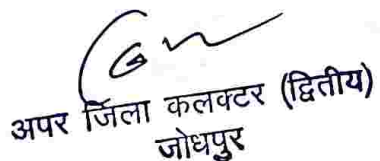 अपर जिला कलक्टर (द्वितीय)
जोधपुर